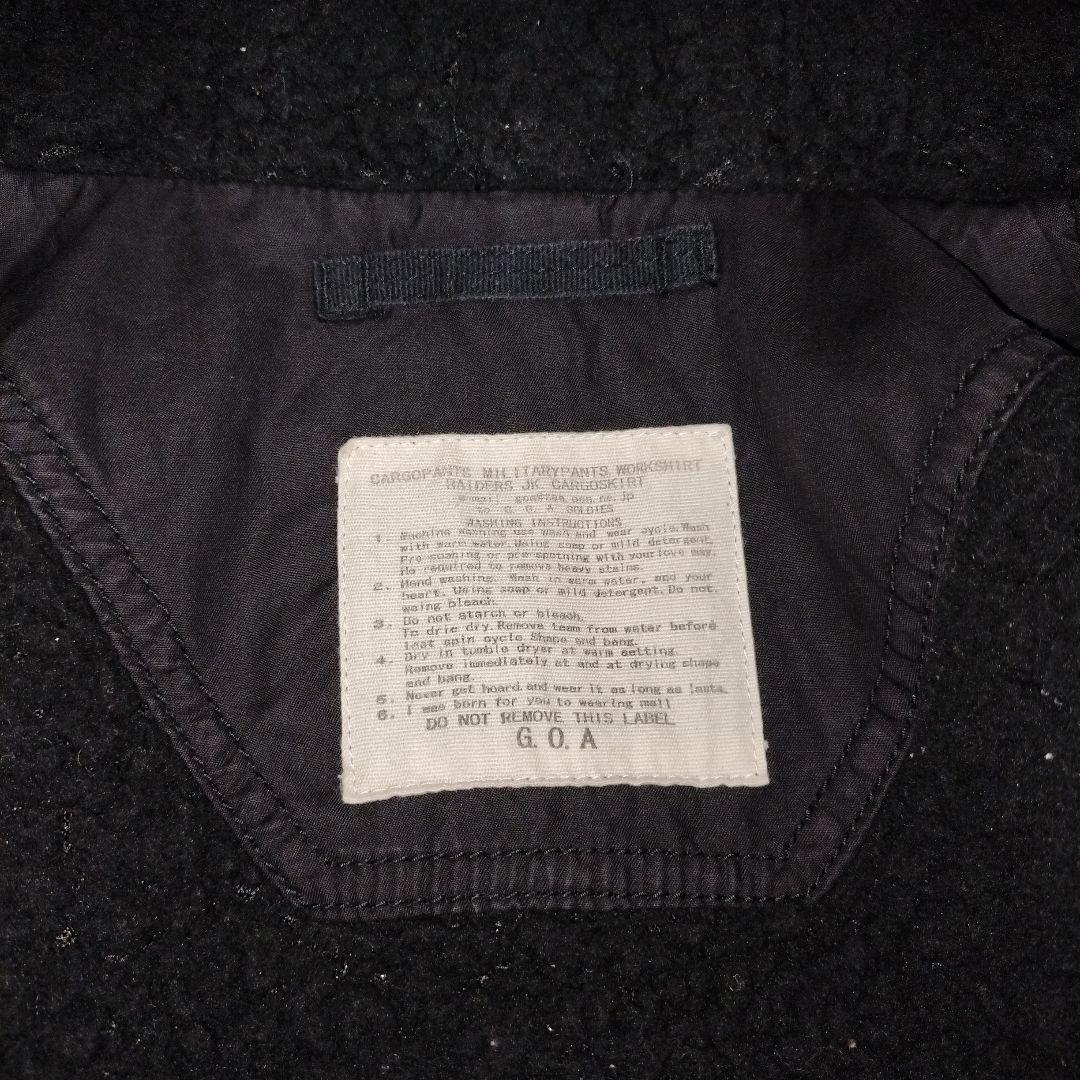 CARGOPANTS MILITARYPANTS WORKSHIRT
RAIDERS JK CARGOSKIRT
to G. O. A SOLDIES
WASHING INSTRUCTIONS
1. Machine washing use wash and wear cycle. Wash
with warm water. Using soap or mild detergent.
Pre soaking or pre spotning with your love may
No required to remove heavy stains.
2. Hand washing. Wash in warm water. and your
heart. Using soap or mild detergent. Do not.
using bleach.
3. Do not starch or bleach.
To drie dry. Remove team from water before
last spin cycle. Shape and bang.
4. Dry in tumble dryer at warm setting.
Remove immediately at and at drying shape
and bang.
5. Never get hoard. and wear it as long as lasts.
6. I was born for you to wearing me!!
DO NOT REMOVE THIS LABEL
G. O. A